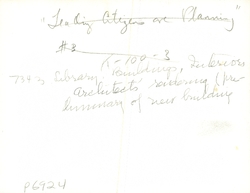 "Leading Citizens are Planning"
#8
K-100-3
Library Buildings, Interiors
Architects' rendering (pre-
Summary of new building
P6924